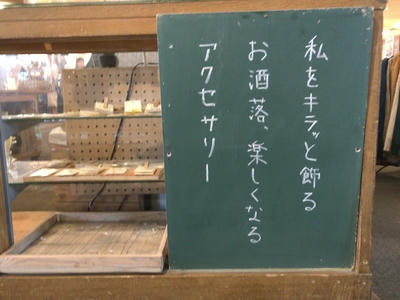 私をキラッと飾る
お酒落、楽しくなる
アクセサリー